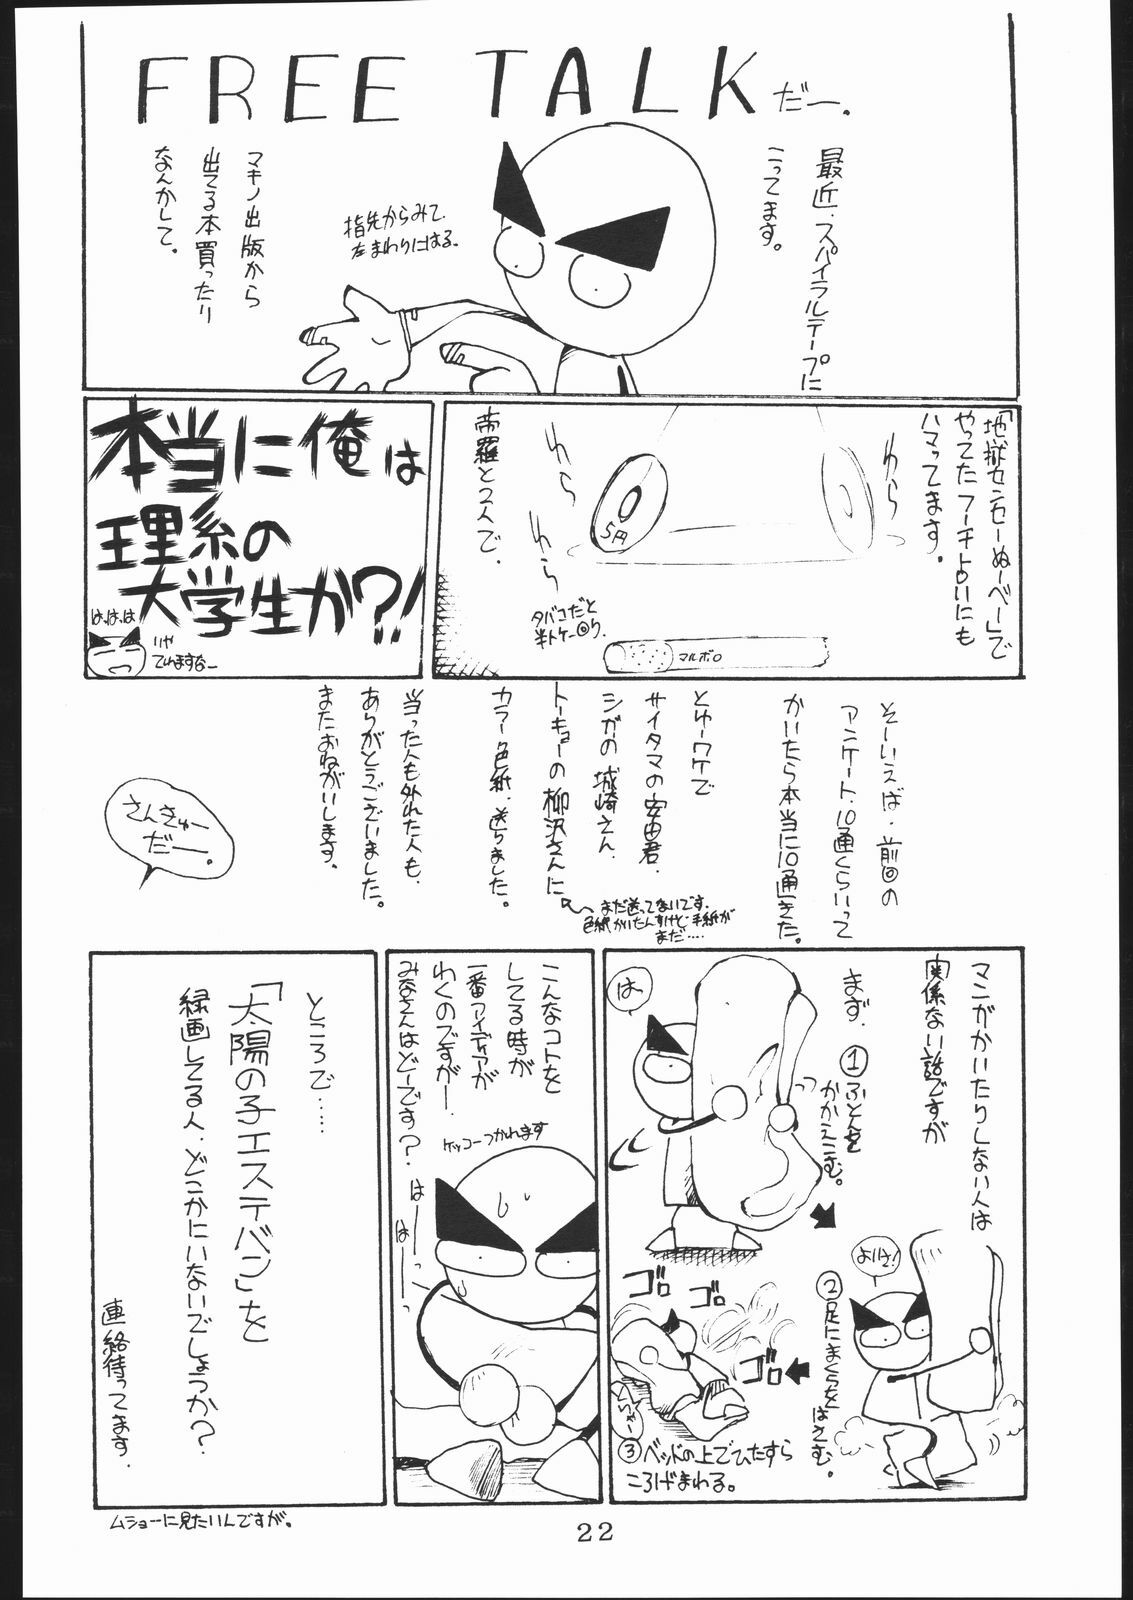 FREE TALKだー。
最近、スパイラルテープに
こってます。
指先からみて
左まわりにはる。
マキノ出版から
出てる本買ったり
なんかして。
「地獄センセーぬ～べ～」で
やってたフーチ占いにも
ハマってます。
帝羅と2人で。
わら
わら
わら
5円
タバコだと
マルボロ
本当に俺は
理系の
大学生か?!
は、は、は
そーいえば、前回の
アンケート、10通くらいって
かいたら本当に10通きた。
とゆーワケで
サイタマの安田君、
シガの城崎さん、
トーキョーの柳沢さんに
カラー色紙、送りました。
まだ送ってないです。
色紙かいたんすけど手紙が
まだ……
当った人も外れた人も、
ありがとうございました。
またおねがいします。
さんきゅー
だー。
マンガかいたりしない人は
関係ない話ですが
まず、
①ふとんを
かかえこむ。
は
②足にまくらをはさむ。
よいしょ!
ゴロ
ゴロ
ゴロ
③ベッドの上でひたすら
ころげまわる。
こんなコトを
してる時が
一番アイディアが
わくのですがー、
みなさんはどーです?
ケッコーつかれます
はーーっ
はーー
ところで……
「太陽の子エステバン」を
録画してる人、どこかにいないでしょうか?
連絡待ってます。
ムショーに見たいんですが。
22